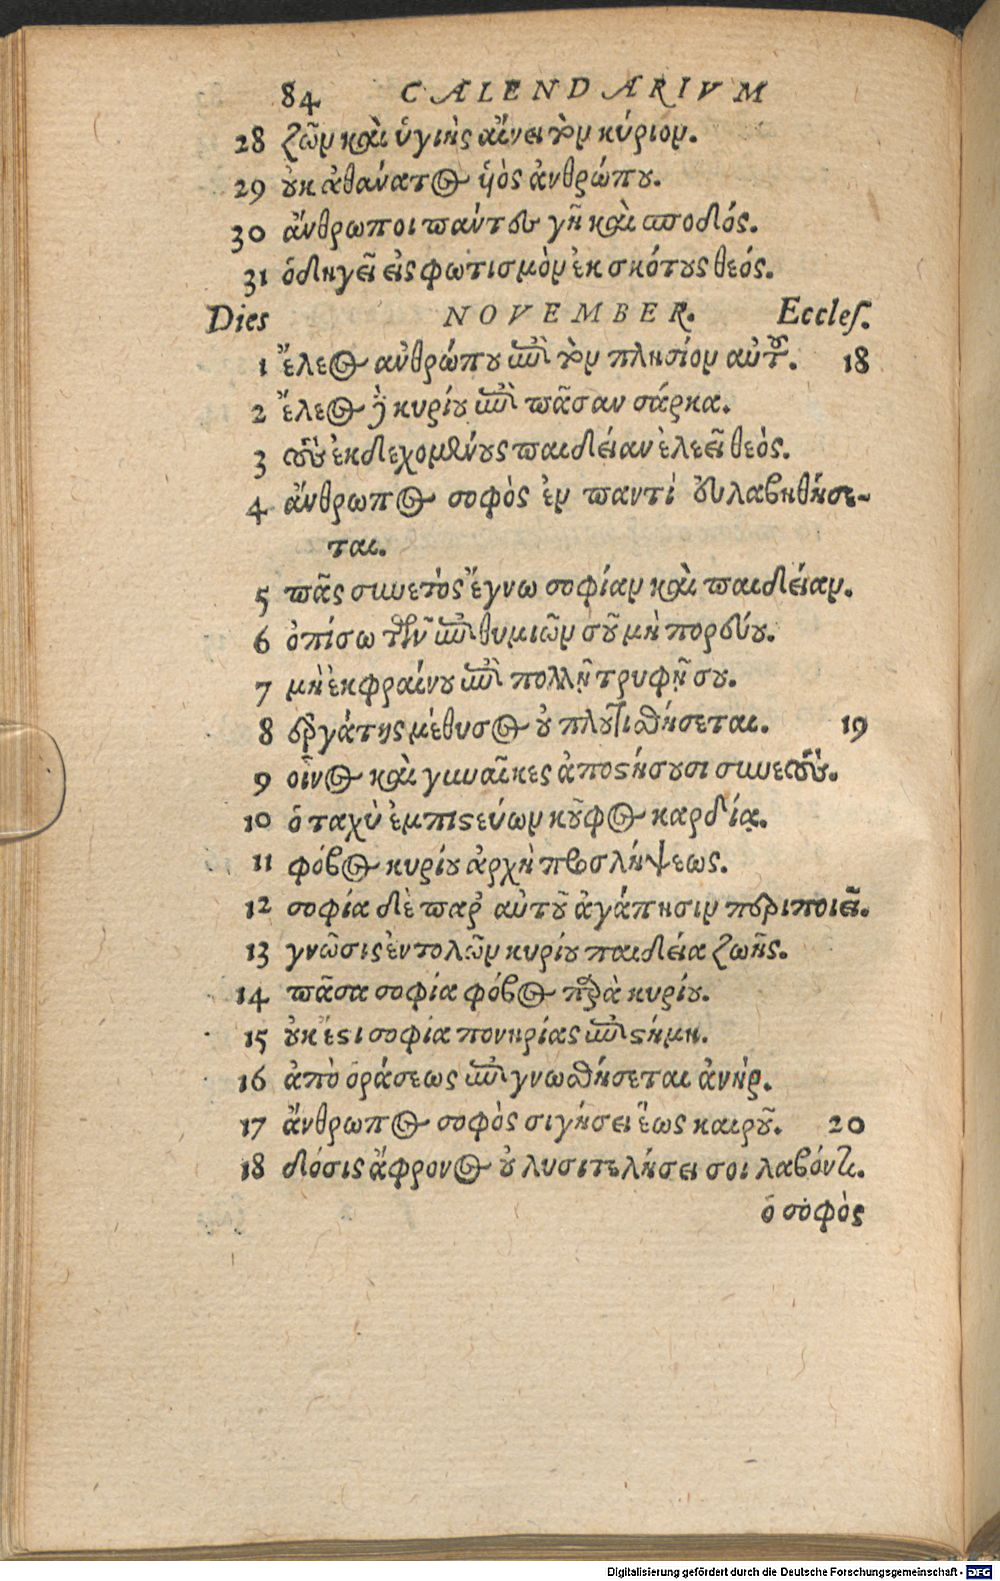 84 CALENDARIVM
28 ζῶν καὶ ὑγιὴς αἴνει τὸν κύριον.
29 οὐκ ἀθάνατος ὑὸς ἀνθρώπου.
30 ἄνθρωποι πάντες γῆ καὶ σποδιός.
31 ὁδηγεῖ εἰς φωτισμὸν ἐκ σκότους θεός.
Dies NOVEMBER. Eccles.
1 ἔλεος ἀνθρώπου ἐπὶ τὸν πλησίον αὐτοῦ. 18
2 ἔλεος δὲ κυρίου ἐπὶ πᾶσαν σάρκα.
3 τοὺς ἐκδεχομένους παιδείαν ἐλεεῖ θεὸς.
4 ἄνθρωπος σοφὸς ἐν παντὶ εὐλαβηθήσε-
ται.
5 πᾶς συνετὸς ἔγνω σοφίαν καὶ παιδείαν.
6 ὀπίσω τῶν ἐπιθυμιῶν σοῦ μὴ πορεύου.
7 μὴ ἐκφραίνου ἐπὶ πολλῇ τρυφῇ σου.
8 ἐργάτης μέθυσος οὐ πλουτιθήσεται. 19
9 οἶνος καὶ γυναῖκες ἀποστήσουσι συνετούς.
10 ὁ ταχὺ ἐμπιστεύων κοῦφος καρδίᾳ.
11 φόβος κυρίου ἀρχὴ προσλήψεως.
12 σοφία δὲ παρ' αὐτοῦ ἀγάπησιν περιποιεῖ.
13 γνῶσις ἐντολῶν κυρίου παιδεία ζωῆς.
14 πᾶσα σοφία φόβος παρὰ κυρίου.
15 οὐκ ἔστι σοφία πονηρίας ἐπιστήμη.
16 ἀπὸ ὁράσεως ἐπιγνωθήσεται ἀνὴρ.
17 ἄνθρωπος σοφὸς σιγήσει ἕως καιροῦ. 20
18 δόσις ἄφρονος οὐ λυσιτελήσει σοι λαβόντι.
ὁ σοφὸς
Digitalisierung gefördert durch die Deutsche Forschungsgemeinschaft - DFG